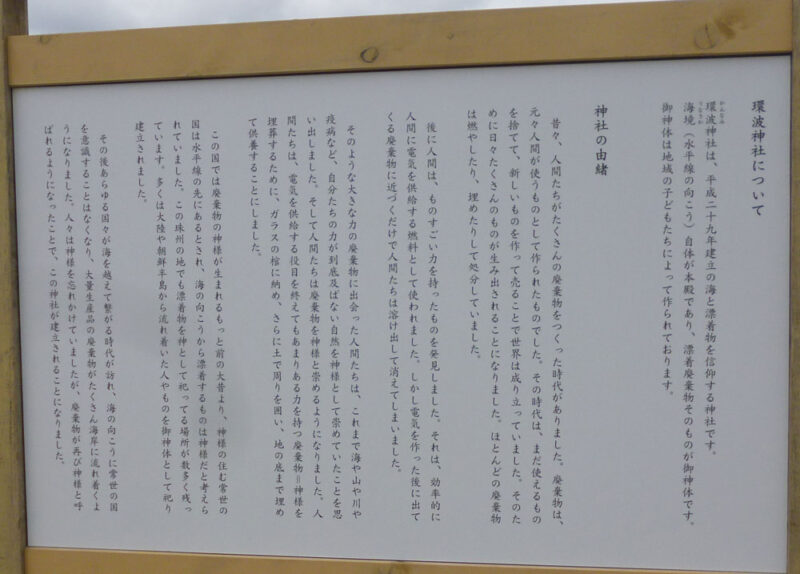 環波神社について
環波神社は、平成二十九年建立の海と漂着物を信仰する神社です。
海境（水平線の向こう）自体が本殿であり、漂着廃棄物そのものが御神体です。
御神体は地域の子どもたちによって作られております。
神社の由緒
昔々、人間たちがたくさんの廃棄物をつくった時代がありました。廃棄物は、
元々人間が使うものとして作られたものでした。その時代は、まだ使えるもの
を捨てて、新しいものを作って売ることで世界は成り立っていました。そのた
めに日々たくさんのものが生み出されることになりました。ほとんどの廃棄物
は燃やしたり、埋めたりして処分していました。
後に人間は、ものすごい力を持ったものを発見しました。それは、効率的に
人間に電気を供給する燃料として使われました。しかし電気を作った後に出て
くる廃棄物に近づくだけで人間たちは溶け出して消えてしまいました。
そのような大きな力の廃棄物に出会った人間たちは、これまで海や山や川や
疫病など、自分たちの力が到底及ばない自然を神様として崇めていたことを思
い出しました。そして人間たちは廃棄物を神様と崇めるようになりました。人
間たちは、電気を供給する役目を終えてもあまりある力を持つ廃棄物＝神様を
埋葬するために、ガラスの棺に納め、さらに土で周りを囲い、地の底まで埋め
て供養することにしました。
この国では廃棄物の神様が生まれるもっと前の大昔より、神様の住む常世の
国は水平線の先にあるとされ、海の向こうから漂着するものは神様だと考えら
れていました。この珠州の地でも漂着物を神として祀ってる場所が数多く残っ
ています。多くは大陸や朝鮮半島から流れ着いた人やものを御神体として祀り
建立されました。
その後あらゆる国々が海を越えて繋がる時代が訪れ、海の向こうに常世の国
を意識することはなくなり、大量生産品の廃棄物がたくさん海岸に流れ着くよ
うになりました。人々は神様を忘れかけていましたが、廃棄物が再び神様と呼
ばれるようになったことで、この神社が建立されることになりました。